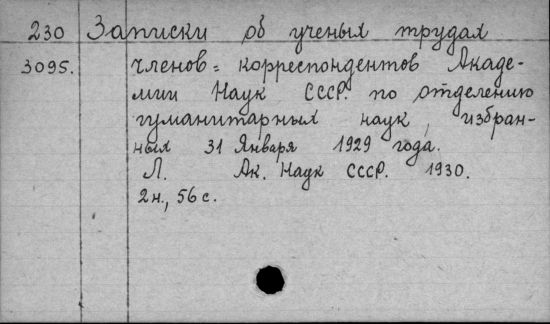 230 Записки об ученых трудах
3095. членов-корреспондентов Акаде-
мии Наук СССР. по отделению
гуманитарных наук, избран-
ных 31 Января 1929 года.
Л. Ак. Наук СССР. 1930.
2н., 56 с.